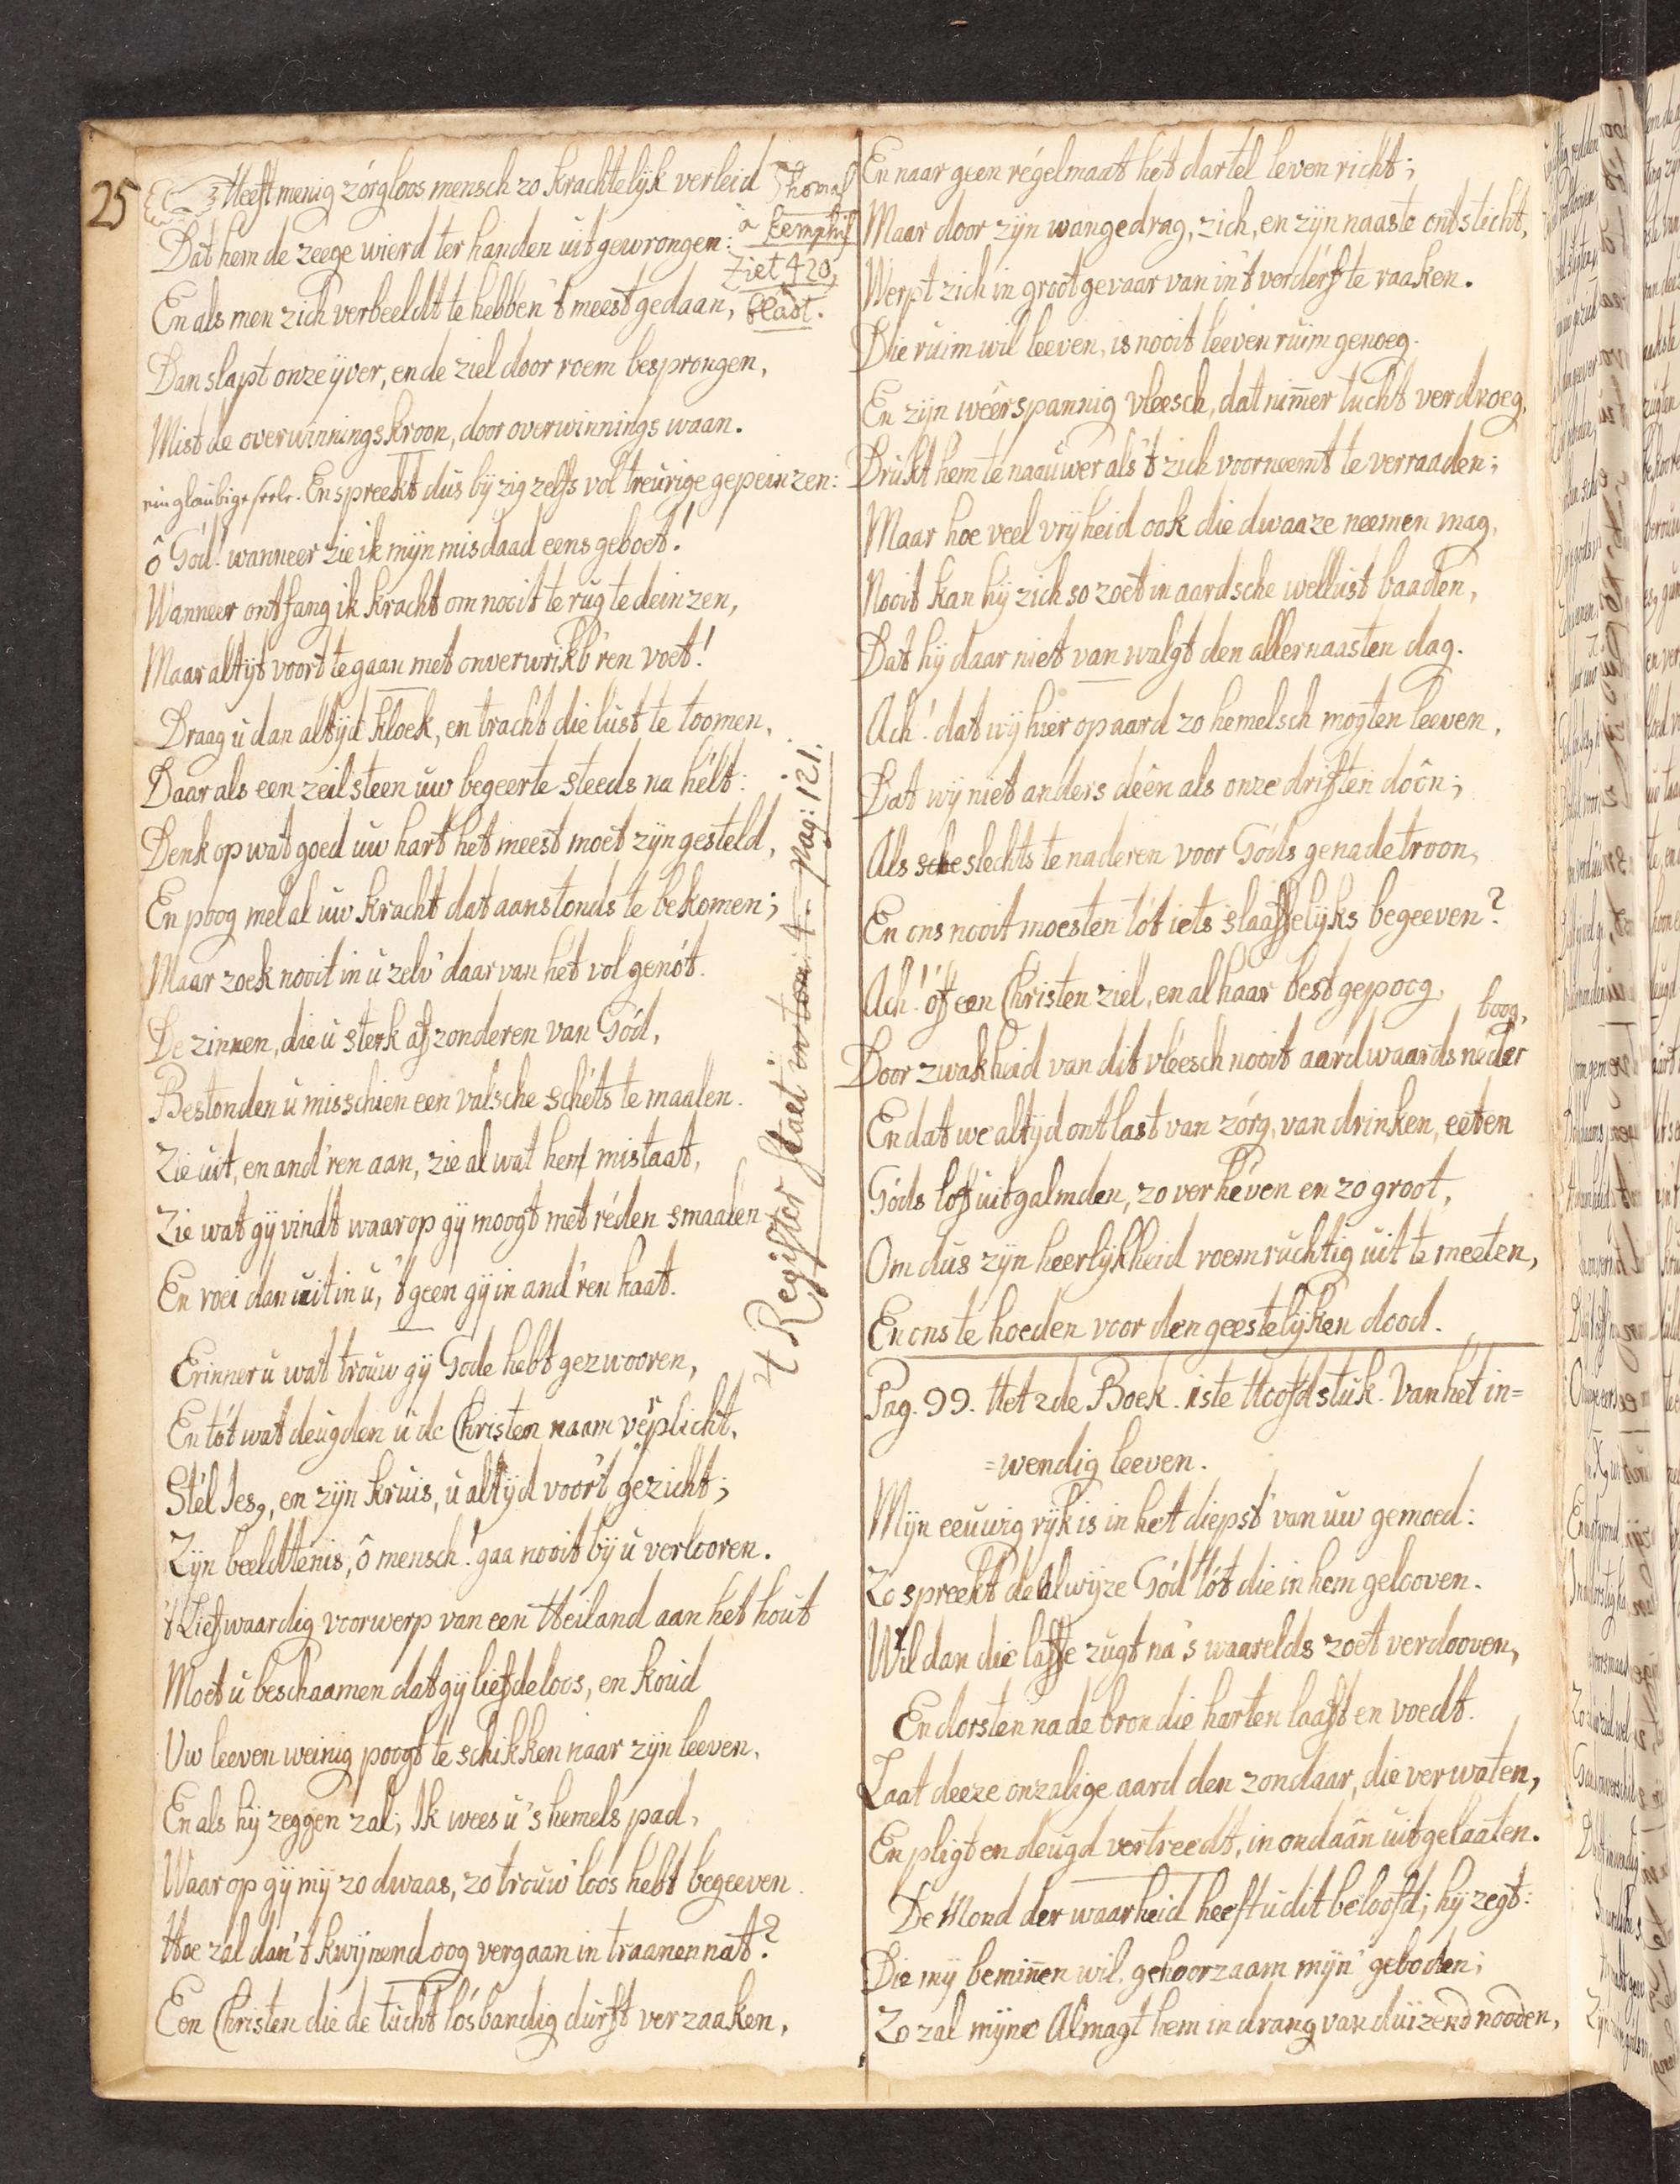 25
Heeft menig zórgloos mensch zo krachtelijk verleid
Thomas
à Kemphis
Ziet 420,
bladt.
Dat hem de zeege wierd ter handen uit gewrongen:
En als men zich verbeeldt te hebben 't meest gedaan,
Dan slapt onze ijver, en de ziel door roem besprongen,
Mist de overwinnings kroon, door overwinnings waan.
ein glaubige seele. En spreekt dus bij zig zelfs vol treurige gepeinzen:
ô Gód! wanneer zie ik mijn misdaad eens geboet!
Wanneer ontfang ik kracht om nooit te rug te deinzen,
Maar altijt voort te gaan met onverwrikb'ren voet!
Draag u dan altijd kloek, en tracht die lust te toomen,
Daar als een zeil'steen uw begeerte steeds na hélt:
Denk op wat goed uw hart het meest moet zijn gesteld,
En poog met al uw kracht dat aanstonds te bekomen;
Maar zoek nooit in u zelv' daar van hét vol genót.
De zinnen, die u sterk af zonderen van Gód,
Bestonden u misschien een valsche schéts te maalen.
Zie uit, en and'ren aan, zie al wat hem mistaat,
Zie wat gij vindt waar op gij moogt met réden smaalen
En roei dan uit in u, 't geen gij in and'ren haat.
't Register staet in tom: 4. pag: 121.
Erinner u wat trouw gij Gode hebt gezwooren,
En tót wat deugden u de Christen naam verplicht,
Stél Jes9, en zijn kruis, u altijd voor't gezicht;
Zijn beeldtenis, ô mensch! gaa nooit bij u verlooren.
't Liefwaardig voorwerp van een Heiland aan hét hout
Moet u beschaamen dat gij liefdeloos, en koud
Uw leeven weinig poogt te schikken naar zijn leeven,
En als hij zeggen zal; Ik wees u 's hemels pad,
Waar op gij mij zo dwaas, zo trouw'loos hebt begeeven.
Hoe zal dan 't kwijnend oog vergaan in traanen nat?
Een Christen die de tucht lósbandig durft verzaaken,
En naar geen régelmaat hét dartel leven richt;
Maar door zijn wangedrag, zich, en zijn naaste ontsticht,
Werpt zich in groot gevaar van in't verdérf te raaken.
Die ruim wil leeven, is nooit leeven ruim genoeg.
En zijn weêrspannig vleesch, dat nim̄er tucht verdroeg,
Drukt hem te naauwer als't zich voorneemt te verraaden;
Maar hoe veel vrijheid ook die dwaaze neemen mag,
Nooit kan hij zich so zoet in aardsche wellust baaden,
Dat hij daar niet van walgt den allernaasten dag.
Ach! dat wij hier op aard zo hemelsch mogten leeven,
Dat wij niet anders deên als onze driften doôn;
Als slechts te naderen voor Góds genade troon,
En ons nooit moesten tót iets slaaffelijks begeeven?
Ach! óf een Christen ziel, en al haar best gepoog,
Door zwakheid van dit vleesch nooit aardwaards neder
boog,
En dat we altijd ontlast van zórg, van drinken, eeten
Góds lof uitgalmden, zo verhéven en zo groot,
Om dus zijn heerlijkheid roemruchtig uit te meeten,
En ons te hoeden voor den geestelijken dood.
Pag. 99. Het 2de Boek. 1ste Hoofdstuk. Van hét in=
=wendig leeven.
Mijn eeuwig rijk is in het diepst' van uw gemoed:
Zo spreekt de Alwijze Gód tót die in hem gelooven.
Wil dan die laffe zugt na 's waarelds zoet verdooven,
En dorsten na de bron die harten laaft en voedt.
Laat deeze onzalige aard den zondaar, die verwaten,
En pligt en deugd vertreedt, in ondaân uitgelaaten.
De Mond der waarheid heeft u dit beloofd; hij zegt:
Die mij bemin̄en wil, gehoorzaam mijn' geboden;
Zo zal mijne Almagt hem in drang van duizend nooden,